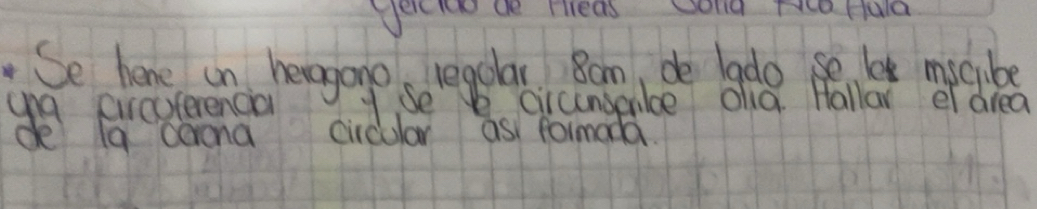 de Areas
* Se tiene un hexagono regular 8cm de lado se le inscribe
una circuferencia y se le circunscribe otra. Hallar el area
de la corona circular asi formada.